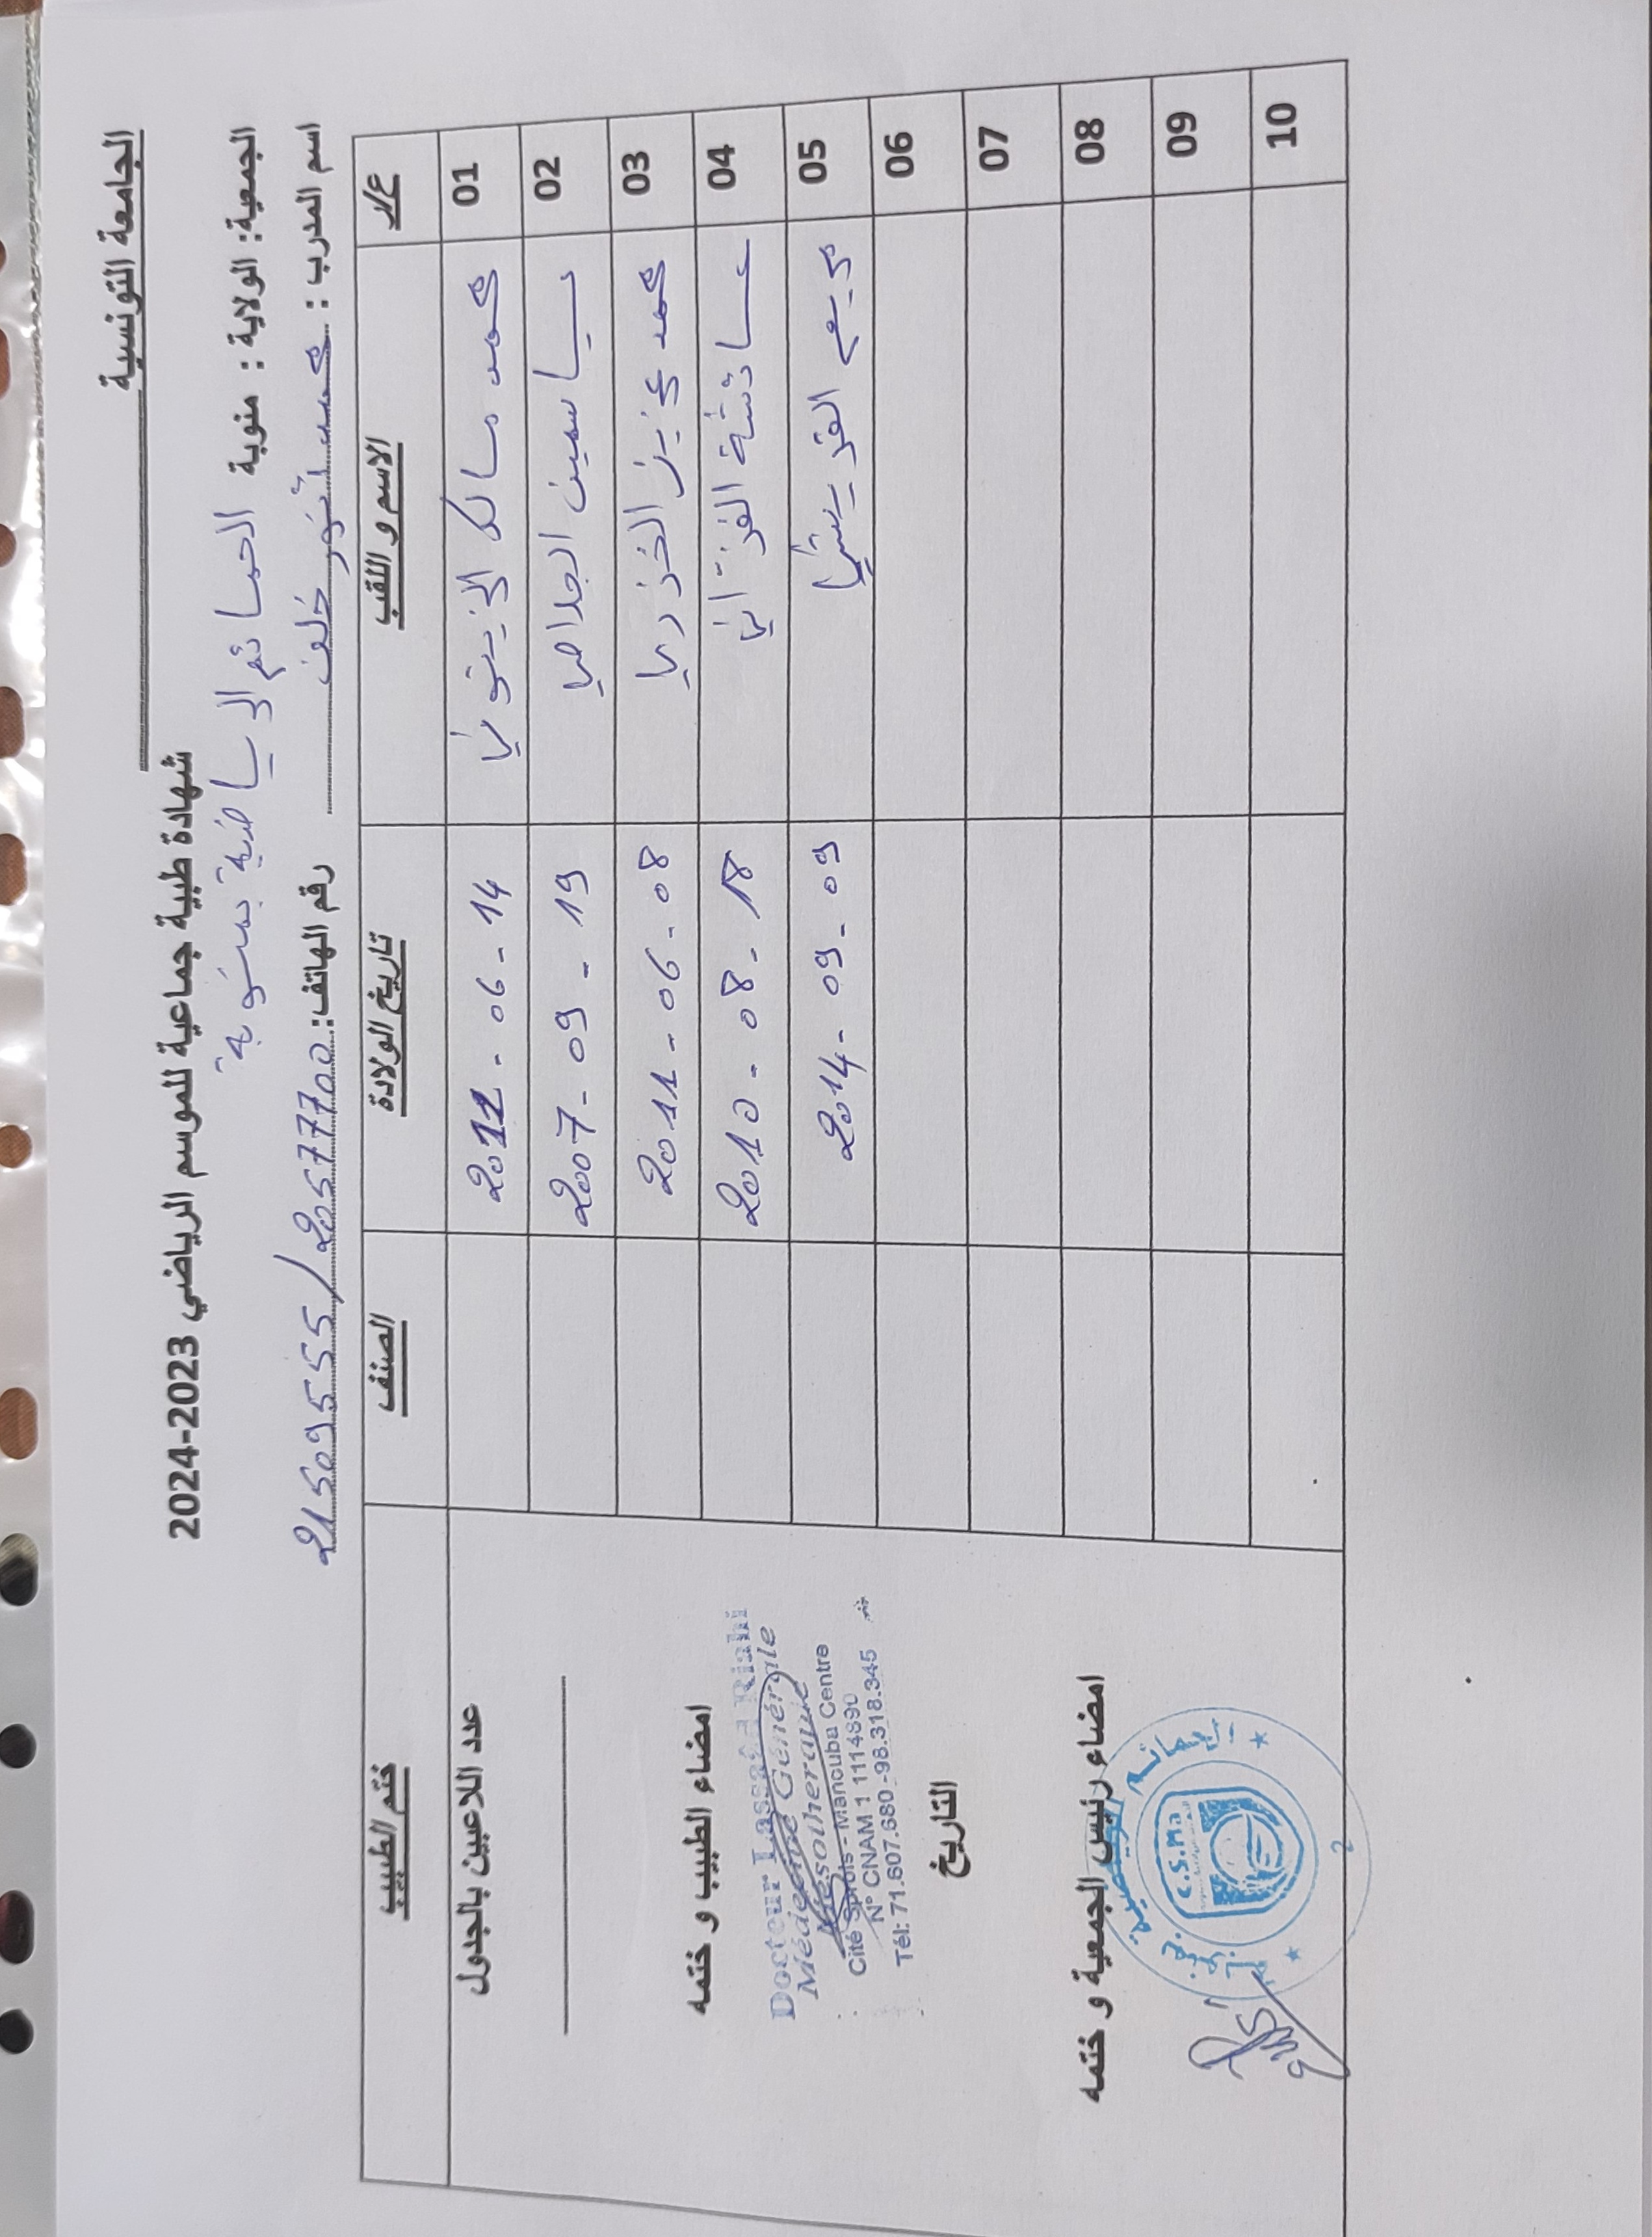 الجامعة التونسية
شهادة طبية جماعية للموسم الرياضي 2023-2024
الجمعية: الولاية : منوبة الحمائم الرياضية بمنوبة
اسم المدرب : محمد أنور خلف رقم الهاتف: 21509555/20577700
ع/ر الاسم و اللقب تاريخ الولادة الصنف ختم الطبيب
01 محمد مالك الزيتوني 14 - 06 - 2011
02 ياسمين 19 - 09 - 2007
03 محمد عزيز الخزري 08 - 06 - 2011
04 عائشة الفزاني 18 - 08 - 2010
05 مريم القريشي 09 - 09 - 2014
06
07
08
09
10
عدد اللاعبين بالجدول
امضاء الطبيب و ختمه
Docteur Lassâd Riahi
Médecine Générale
Mésothérapie
Cité Sprols - Manouba Centre
N° CNAM 1 1114890
Tél: 71.607.680 -98.318.345
التاريخ
امضاء رئيس الجمعية و ختمه
C.S.Ma